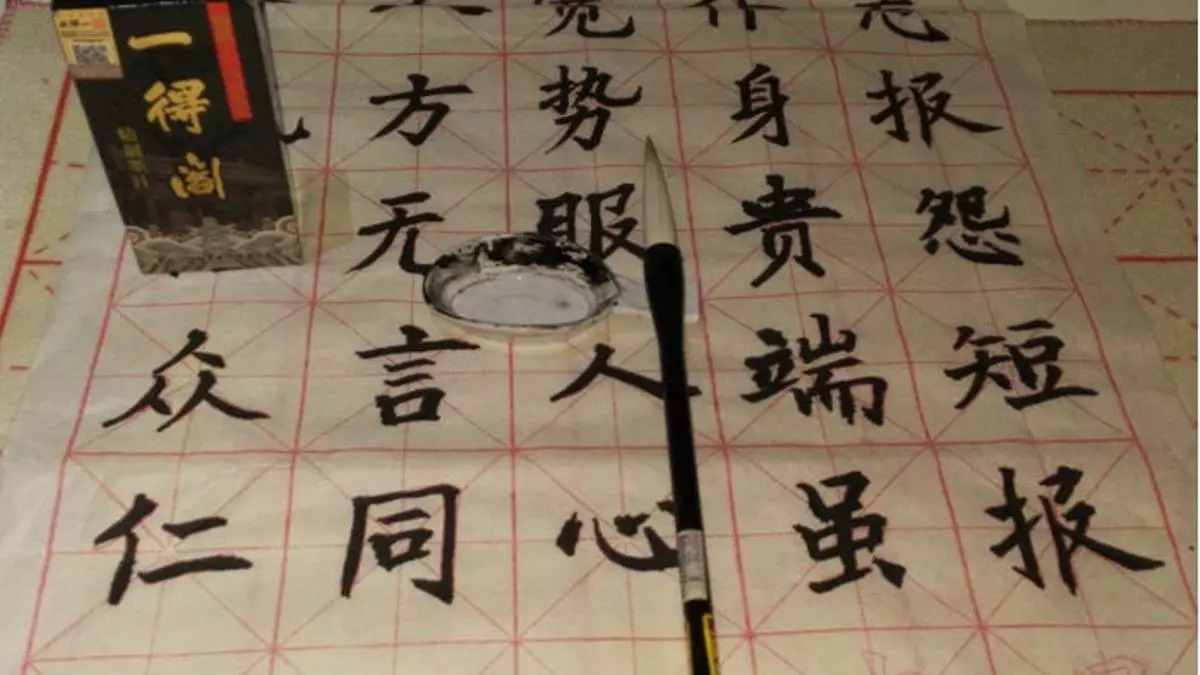 忘报怨短报
身贵端虽
宽势服人心
方无言同
众仁
一得阁